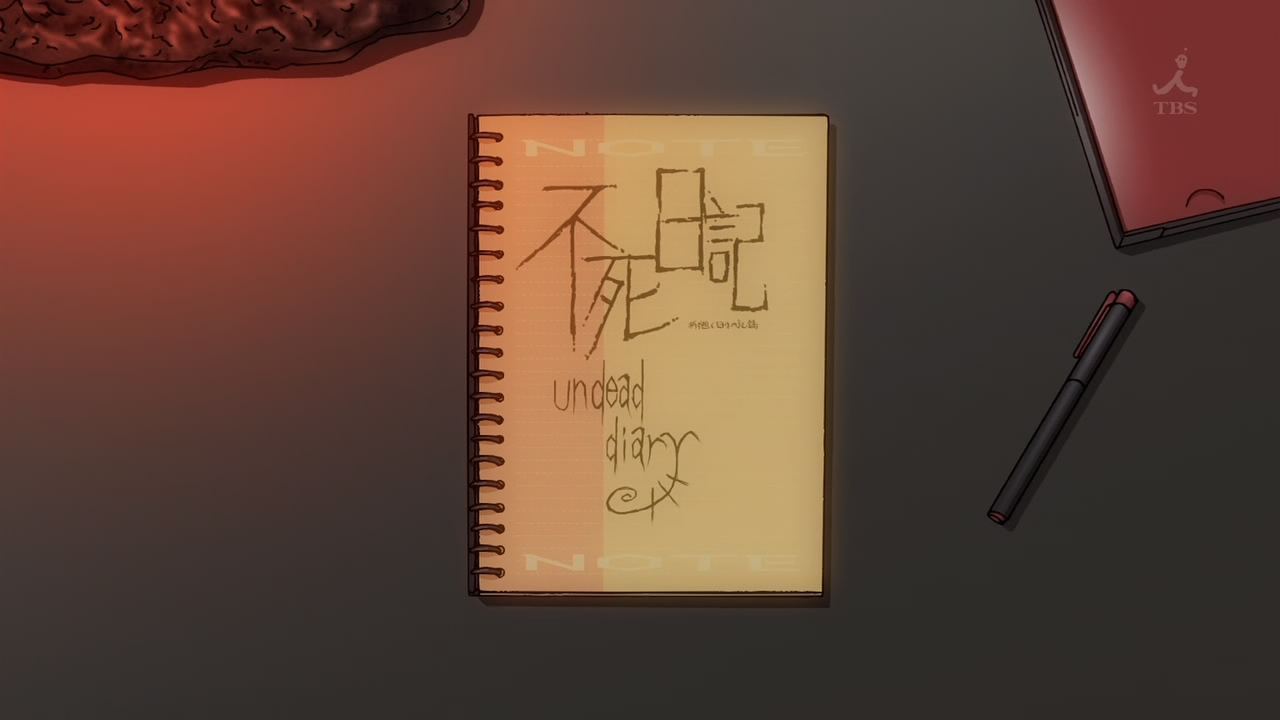 NOTE
不死日記
undead
diary
NOTE
TBS